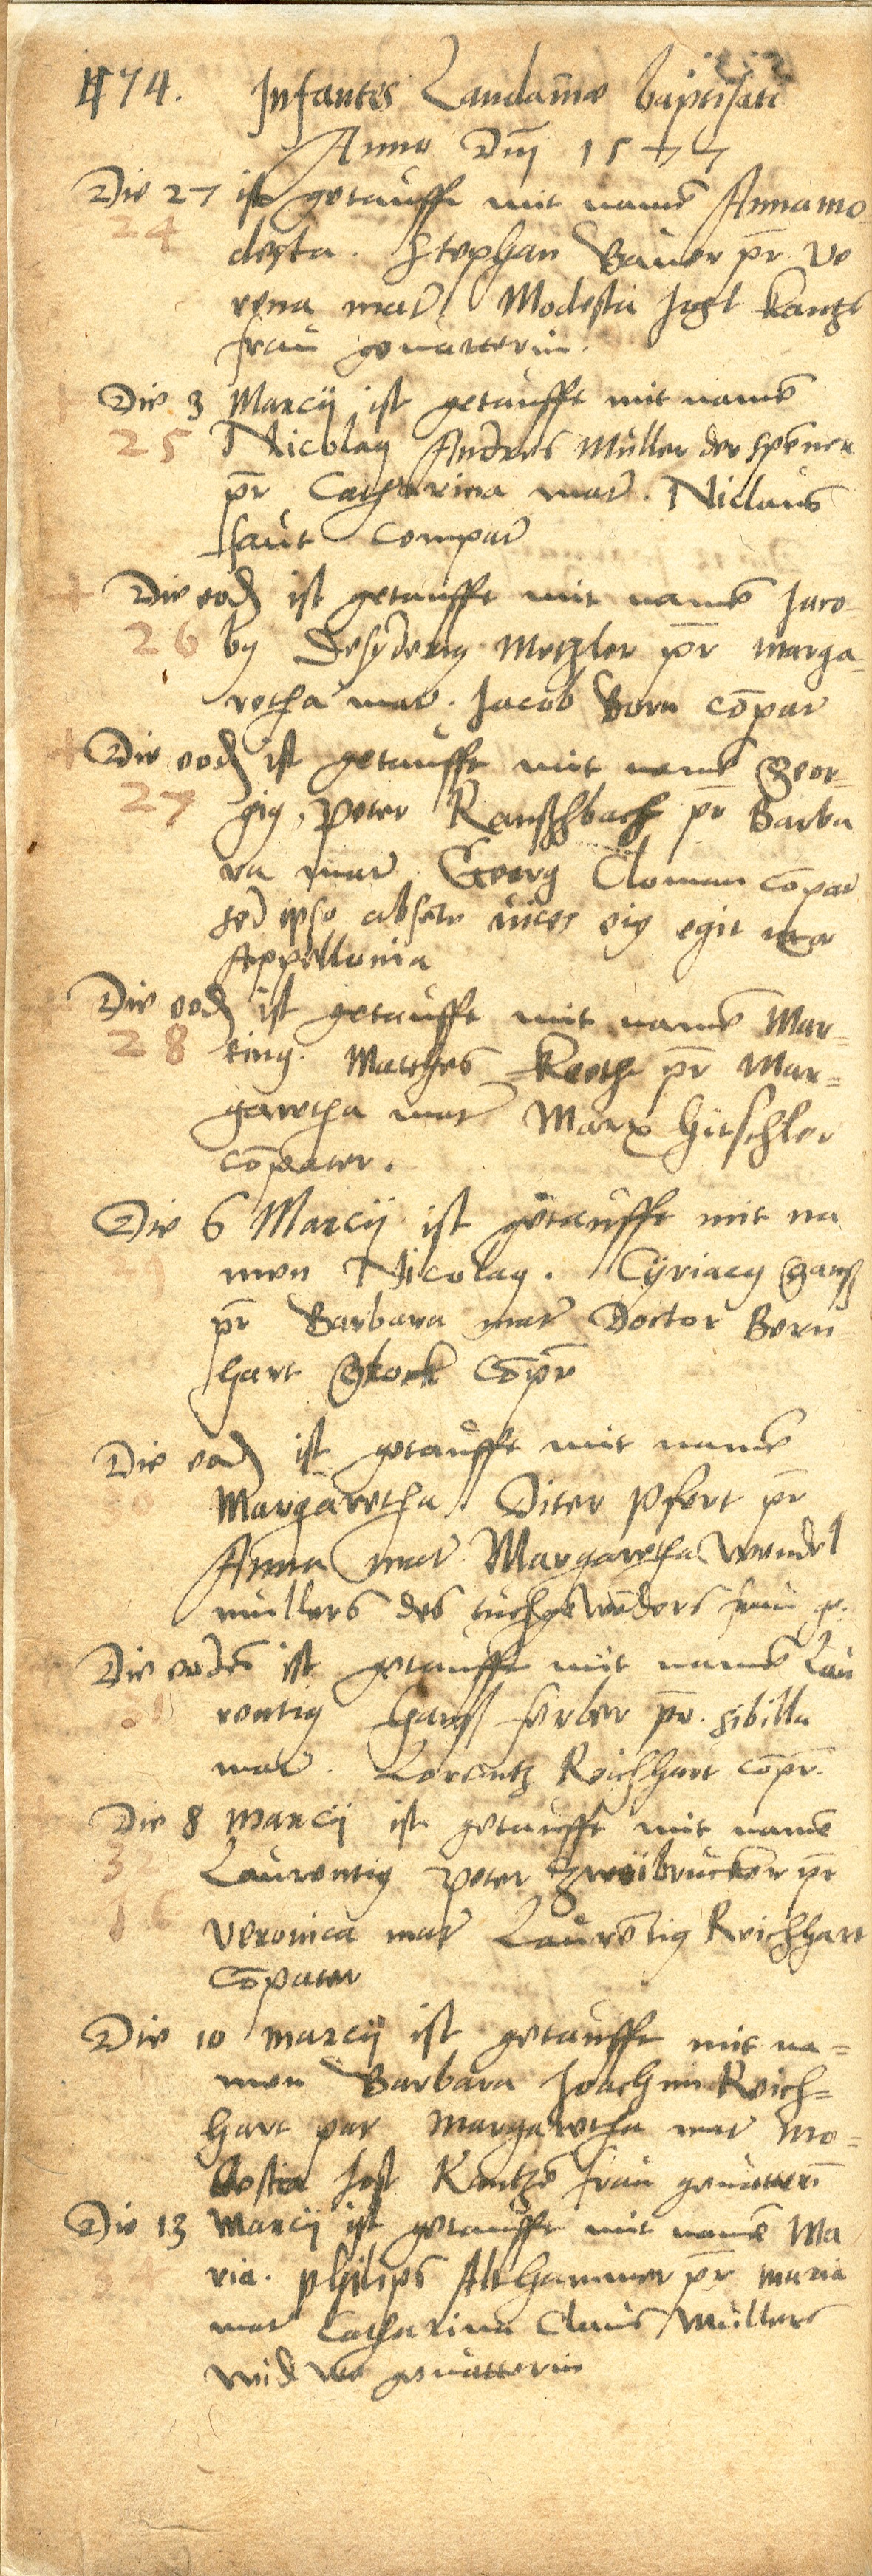 474. Infantes Landauiae baptisati
Anno Dni 1577
Die 27 ist getaufft mit namē Anna mo-
24
desta. Stephan Bauer pr̄ Ve
rena mat̄ Modesta Jost Kantzs
frau gevatterin.
Die 3 Marcij ist getaufft mit namē
25 Nicolaꝯ Andres Müller der
pr̄ Catharina mat̄. Niclaus
faut Compat̄
Die eod ist getaufft mit namē Jaco-
26 bꝯ Desyderiꝯ Metzler pr̄ Marga-
retha mat̄. Jacob Born cōpat̄
Die eod ist getaufft mit namē Geor-
27 giꝯ, Peter Rauschbach pr̄ Barba
ra mat̄ Georg Cloman cōpat̄
sed ipso absēte vices eiꝯ egit
Appellonia
Die eod ist getaufft mit namē Mar-
28 tinꝯ. Matthes pr̄ Mar=
garetha mat̄ Marx Hitschler
cōpater.
Die 6 Marcij ist getaufft mit na
29 men Nicolaꝯ. Cyriacꝯ Ganß
pr̄ Barbara mat̄ Doctor Bern-
hart Cōpr̄
Die eod ist getaufft mit namē
30 Margaretha. Diter Pfert pr̄
Anna mat̄ Margaretha Wendel
müllers des tuchgewēders frau ge.
Die eodē ist getaufft mit namē Lau
rentiꝯ Hanß ferber pr̄. Sibilla
mat̄. Lorentz Reichhart cōpr̄.
Die 8 Marcij ist getaufft mit namē
3 Laurentiꝯ Peter Zweibrucker pr̄
Veronica mat̄ Laurētiꝯ Reichhart
Cōpater
Die 10 Marcij ist getaufft mit na=
men Barbara Joachim Reich=
hart pat̄ Margaretha mat̄ Mo=
desta Jost Kantzē frau gevatterī
Die 13 Marcij ist getaufft mit namē Ma
ria. Philips Althammer pr̄ Maria
mat̄ Catharina Claus Müllers
widwe gevatterin